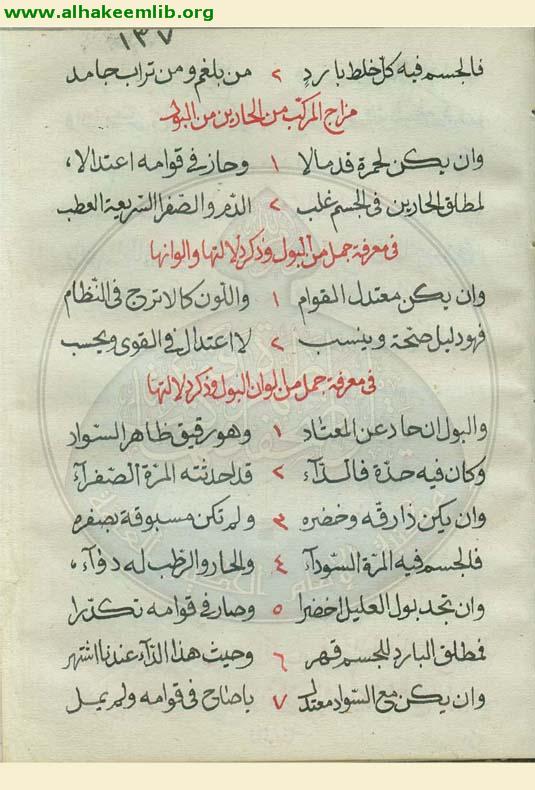 www.alhakeemlib.org
١٣٧
فالجسم فيه كل خلط بارد ٢ من بلغم ومن تراب جامد
مزاج المركب من الحارين من البول
وان يكن لحمرة قد مالا ١ وحاز في قوامه اعتدالا،
لمطلق الحارين في الجسم غلب ٢ الدم والصفرا السريعة العطب
في معرفة جمل من البول وذكر دلالتها والوانها
وان يكن معتدل القوام ١ واللون كالاترج في النظام
فهو دليل صحة وينسب ٢ لاعتدال في القوى ويحسب
في معرفة جمل من الوان البول وذكر دلالتها
والبول ان حاد عن المعتاد ١ وهو رقيق ظاهر السواد
وكان فيه حدة فالدآء ٢ قد احدثته المرة الصفرآء
وان يكن ذا رقه وخضره ٣ ولم تكن مسبوقة بصفره
فالجسم فيه المرة السودآء ٤ والحار والرطب له دوآء،
وان تجد بول العليل اخضرا ٥ وصار في قوامه تكدرا
فمطلق البارد للجسم قهر ٦ وحيث هذا الدآء عندنا اشتهر
وان يكن مع السواد معتدل ٧ ياصاح في قوامه ولم يمل